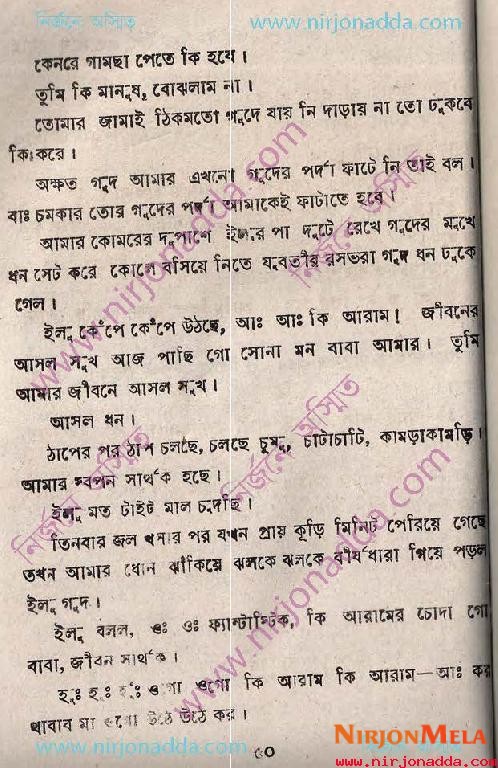 নির্জনে অস্মিত www.nirjonadda.com
কেনরে গামছা পেতে কি হবে।
তুমি কি মানুষ, বোঝলাম না।
তোমার জামাই ঠিকমতো গুদে যায় নি দাড়ায় না তো ঢুকবে
কি করে।
অক্ষত গুদ আমার এখনো গুদের পর্দা ফাটে নি তাই বল।
বাঃ চমকার তোর গুদের পর্দা আমাকেই ফাটাতে হবে।
আমার কোমরের দুপাশে ইলুর পা দুটো রেখে গুদের মুখে
ধন সেট করে কোলে বসিয়ে নিতে যুবতীর রসভরা গুদ ধন ঢুকে
গেল।
ইলু কেঁপে কেঁপে উঠছে, আঃ আঃ কি আরাম! জীবনের
আসল সুখ আজ পাচ্ছি গো সোনা মন বাবা আমার। তুমি
আমার জীবনে আসল সুখ।
আসল ধন।
ঠাপের পর ঠাপ চলছে, চলছে চুমু, চাটাচাটি, কামড়াকামড়ি।
আমার স্বপন সার্থক হছে।
ইলু মত টাইট মাল চুদছি।
তিনবার জল খসার পর যখন প্রায় কুড়ি মিনিট পেরিয়ে গেছে
তখন আমার ধোন ঝাঁকিয়ে ঝলকে ঝলকে বীর্যধারা গিয়ে পড়ল
ইলু গুদ।
ইলু বলল, ওঃ ওঃ ফ্যান্টাস্টিক, কি আরামের চোদা গো
বাবা, জীবন সার্থক।
হুঃ হুঃ হুঃ ওগো ওগো কি আরাম কি আরাম—আঃ কর
মা ওগো উঠে উঠে কর।
৫০
www.nirjonadda.com
NIRJONMELA
www.nirjonadda.com
www.nirjonadda.com
নির্জনে অস্মিত
www.nirjonadda.com
নির্জনে অস্মিত
নির্জনে অস্মিত
www.nirjonadda.com